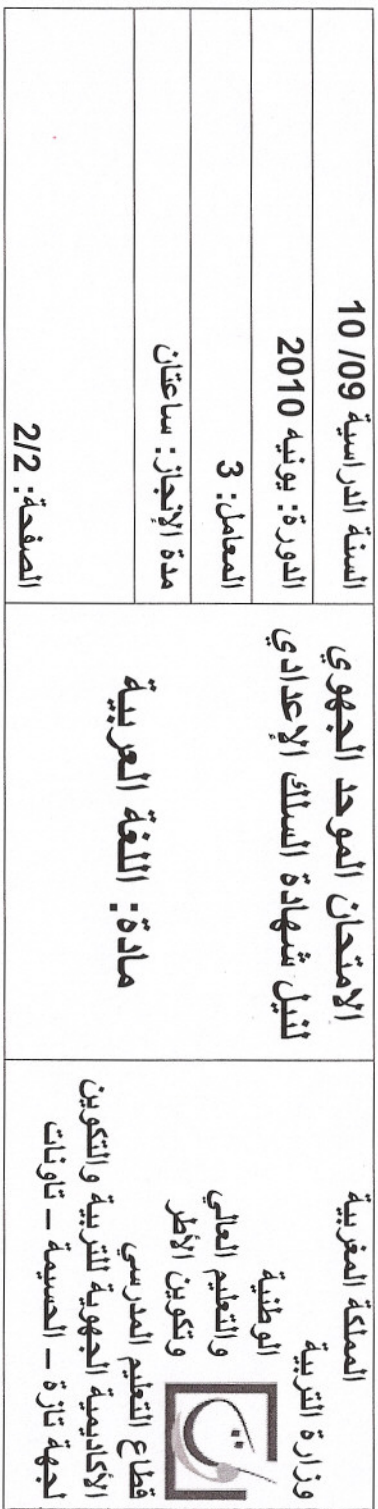 المملكة المغربية
وزارة التربية
الوطنية
والتعليم العالي
وتكوين الأطر
قطاع التعليم المدرسي
الأكاديمية الجهوية للتربية والتكوين
لجهة تازة – الحسيمة – تاونات
الامتحان الموحد الجهوي
لنيل شهادة السلك الإعدادي
مادة: اللغة العربية
السنة الدراسية 09/ 10
الدورة: يونيه 2010
المعامل: 3
مدة الإنجاز: ساعتان
الصفحة: 2/2